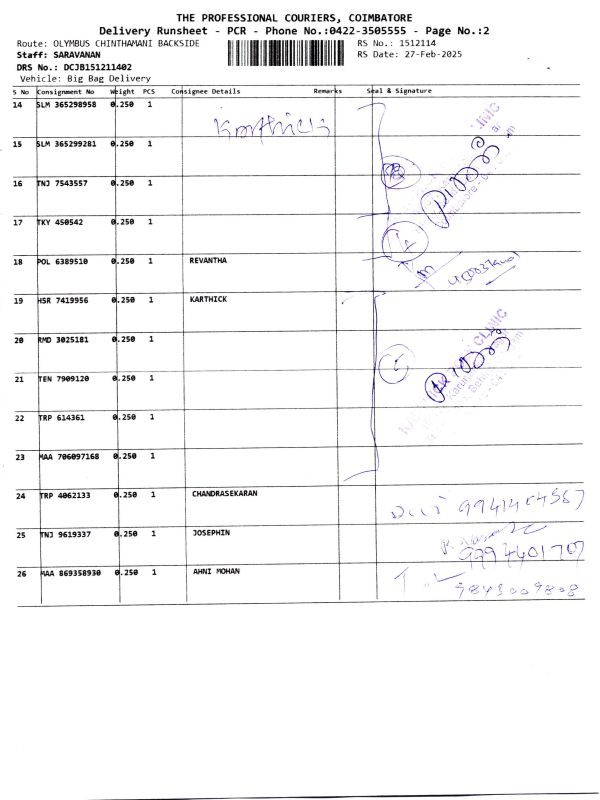 THE PROFESSIONAL COURIERS, COIMBATORE
Delivery Runsheet - PCR - Phone No.:0422-3505555 - Page No.:2
Route: OLYMBUS CHINTHAMANI BACKSIDE
RS No.: 1512114
Staff: SARAVANAN
RS Date: 27-Feb-2025
DRS No.: DCJB151211402
Vehicle: Big Bag Delivery
S No Consignment No Weight PCS Consignee Details Remarks Seal & Signature
14 SLM 365298958 0.250 1
Karthick
15 SLM 365299281 0.250 1
16 TNJ 7543557 0.250 1
17 TKY 450542 0.250 1
18 POL 6389510 0.250 1 REVANTHA
19 HSR 7419956 0.250 1 KARTHICK
20 RMD 3025181 0.250 1
CLINIC
21 TEN 7909120 0.250 1
22 TRP 614361 0.250 1
23 MAA 706097168 0.250 1
24 TRP 4062133 0.250 1 CHANDRASEKARAN
25 TNJ 9619337 0.250 1 JOSEPHIN
26 MAA 869358930 0.250 1 AHNI MOHAN
9843009808